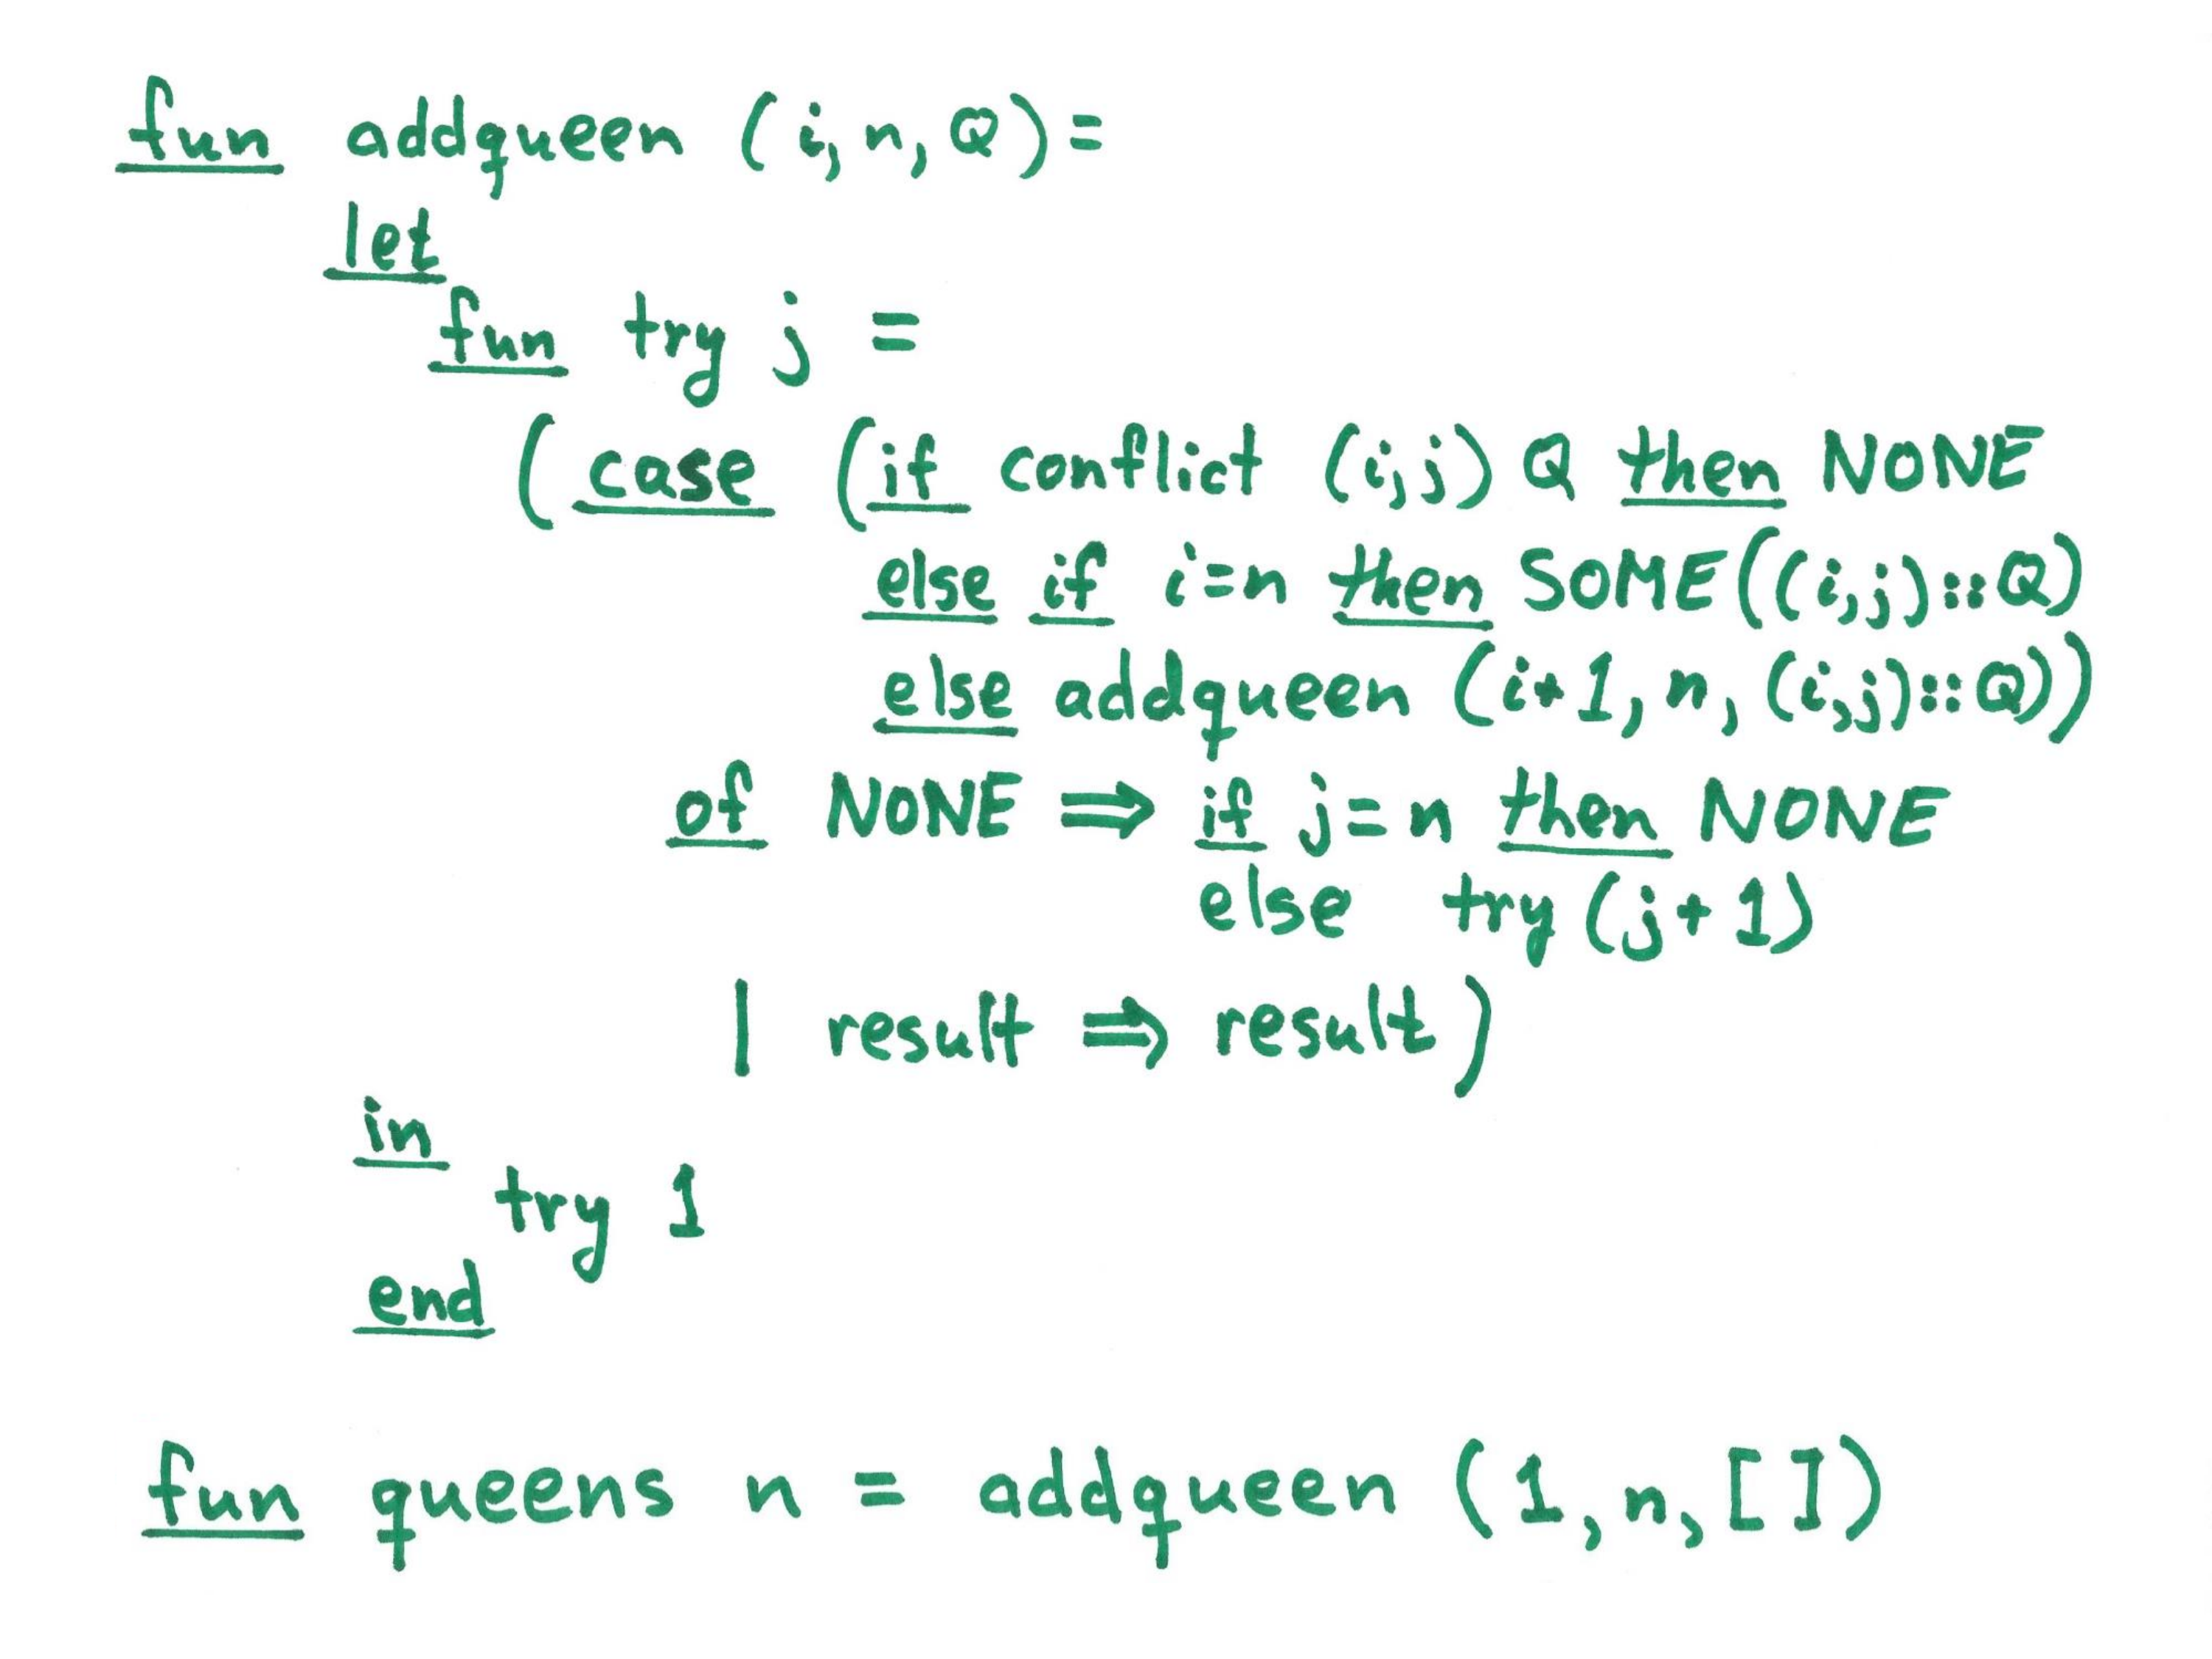 fun addqueen (i, n, Q) =
let
fun try j =
(case (if conflict (i,j) Q then NONE
else if i=n then SOME((i,j)::Q)
else addqueen (i+1, n, (i,j)::Q))
of NONE ⇒ if j=n then NONE
else try (j+1)
| result ⇒ result)
in
try 1
end
fun queens n = addqueen (1, n, [])